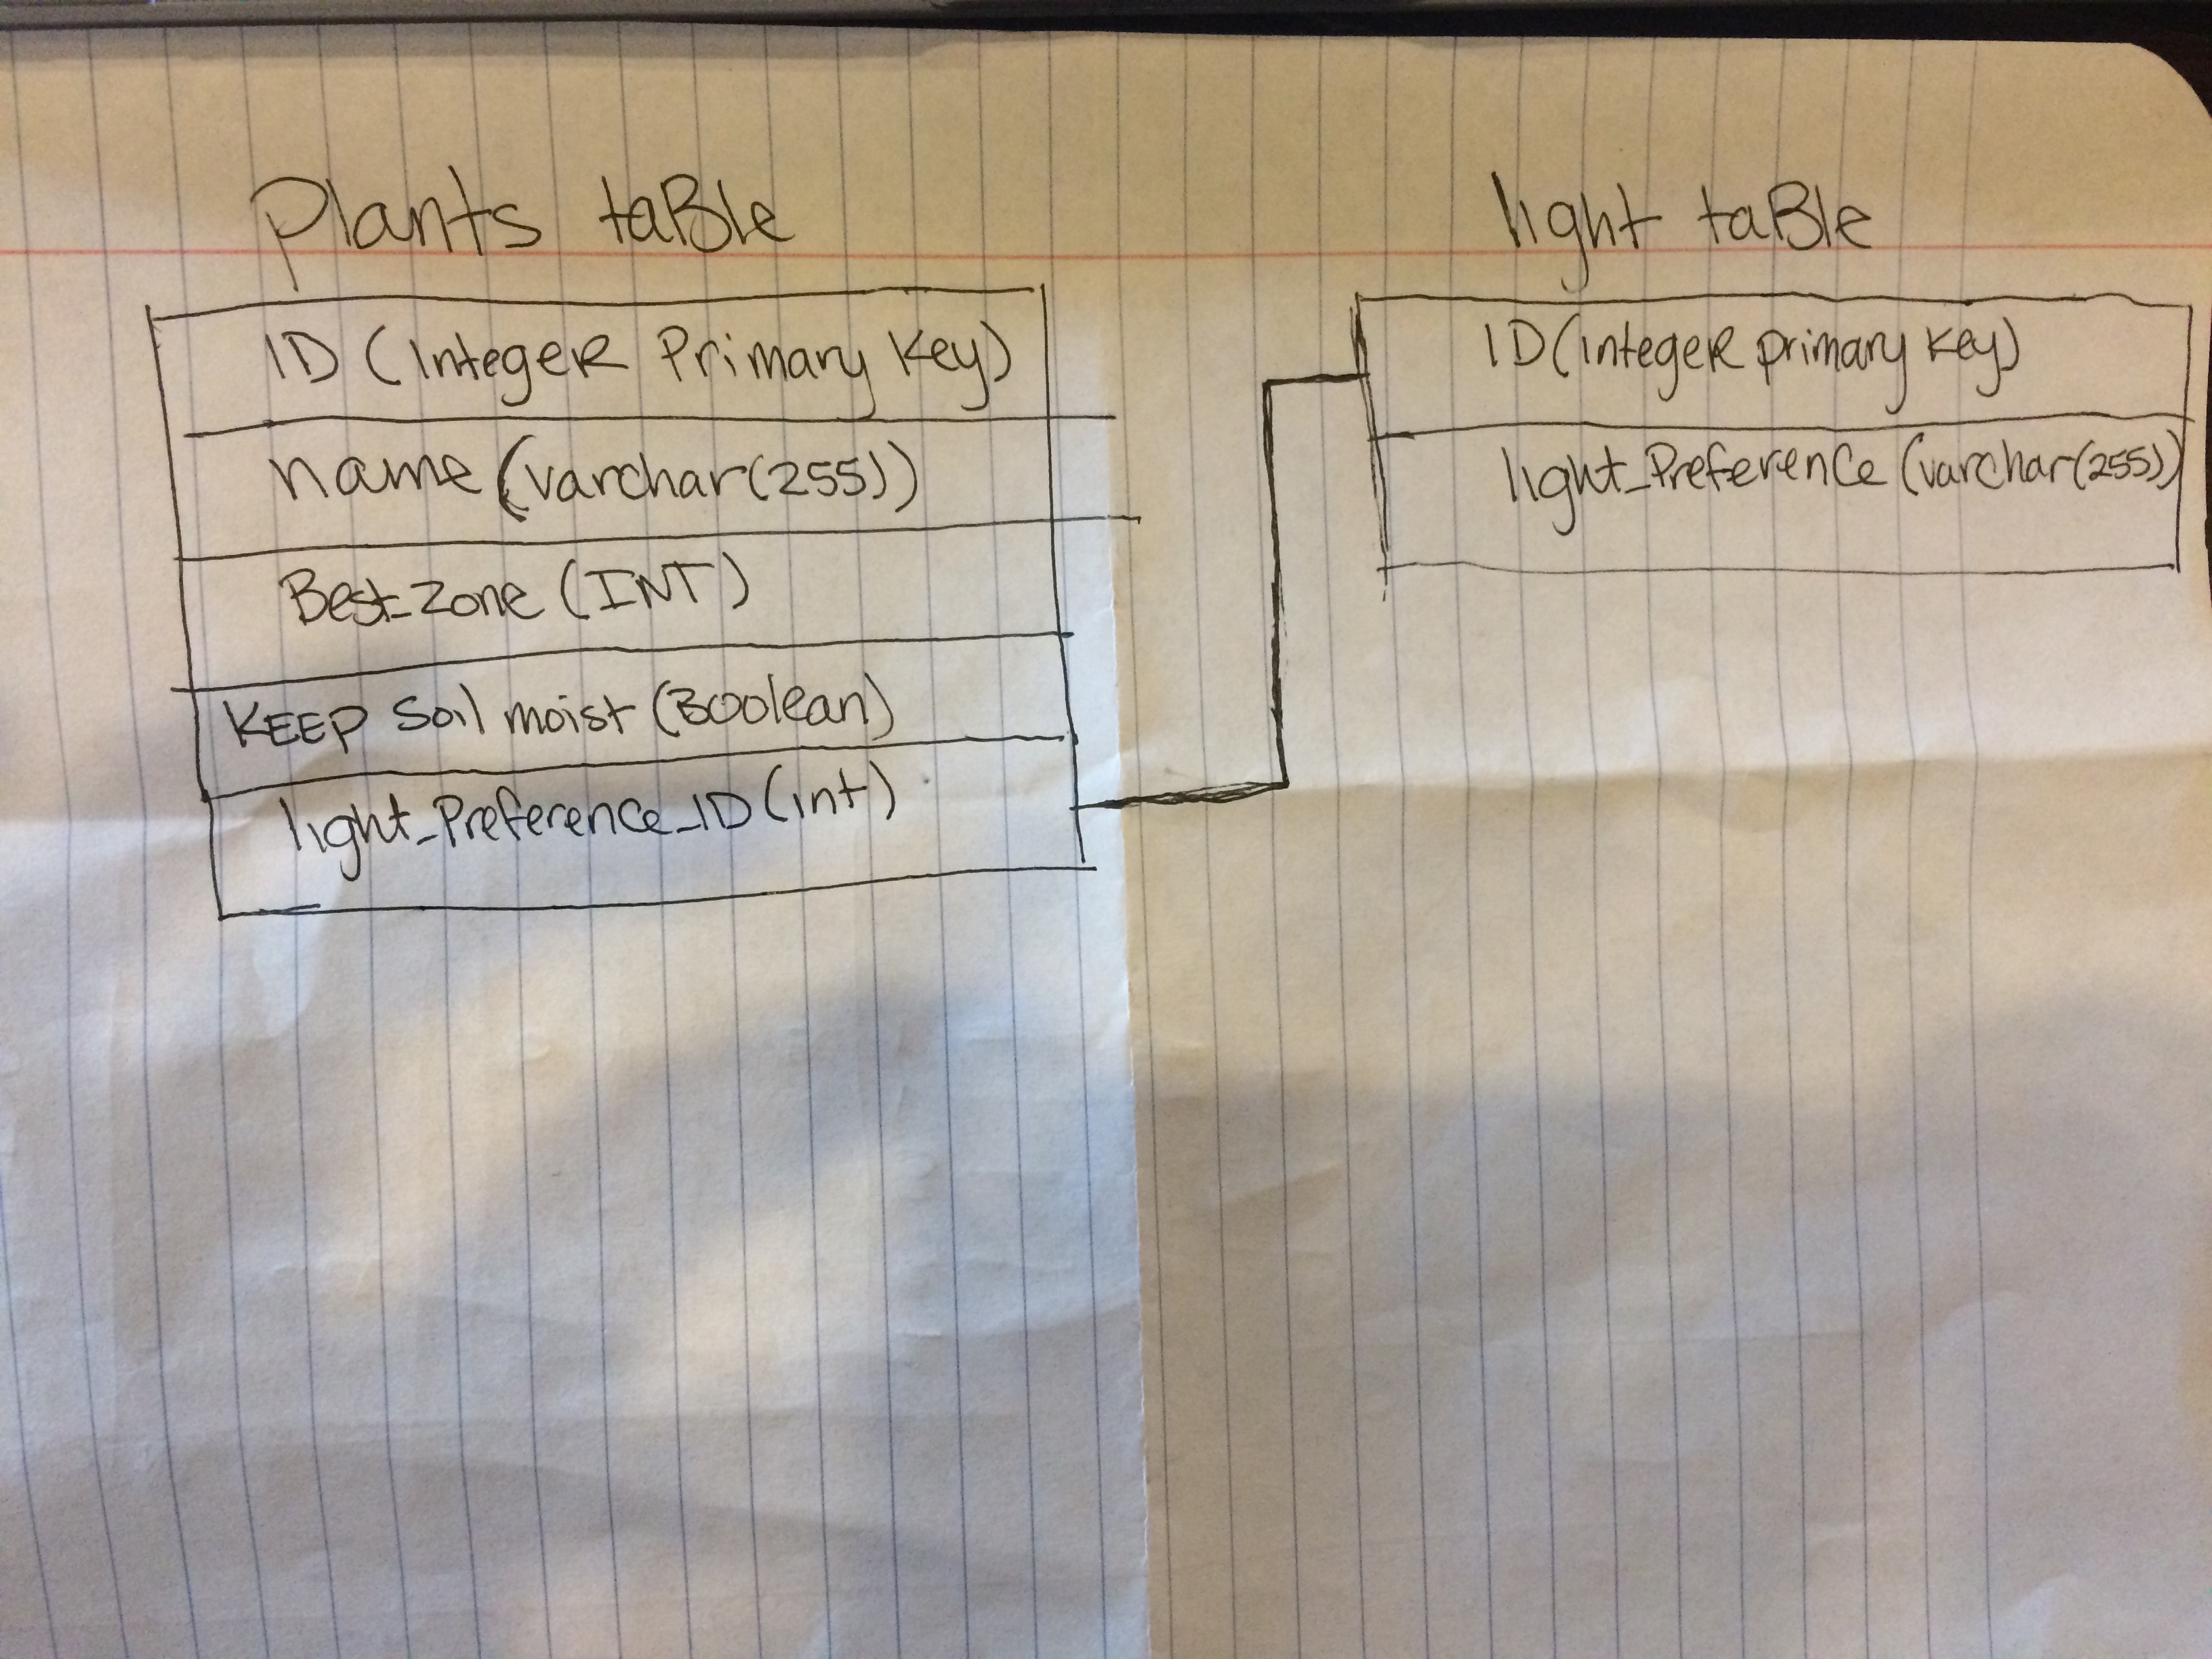 Plants taBle
ID (IntegeR Primary Key)
name (varchar(255))
Best_Zone (INT)
KEEP Soil moist (Boolean)
light_Preference_ID (int)
light taBle
ID (integeR primary key)
light_Preference (varchar(255))